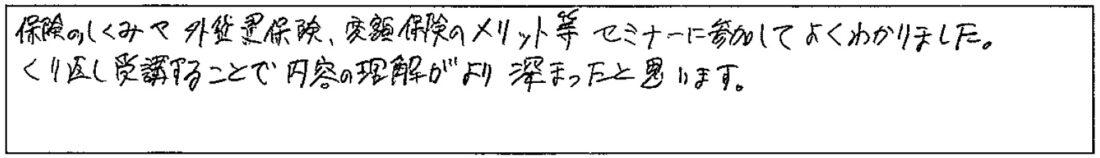 保険のしくみや外貨建保険、変額保険のメリット等セミナーに参加してよくわかりました。
くり返し受講することで内容の理解がより深まったと思います。